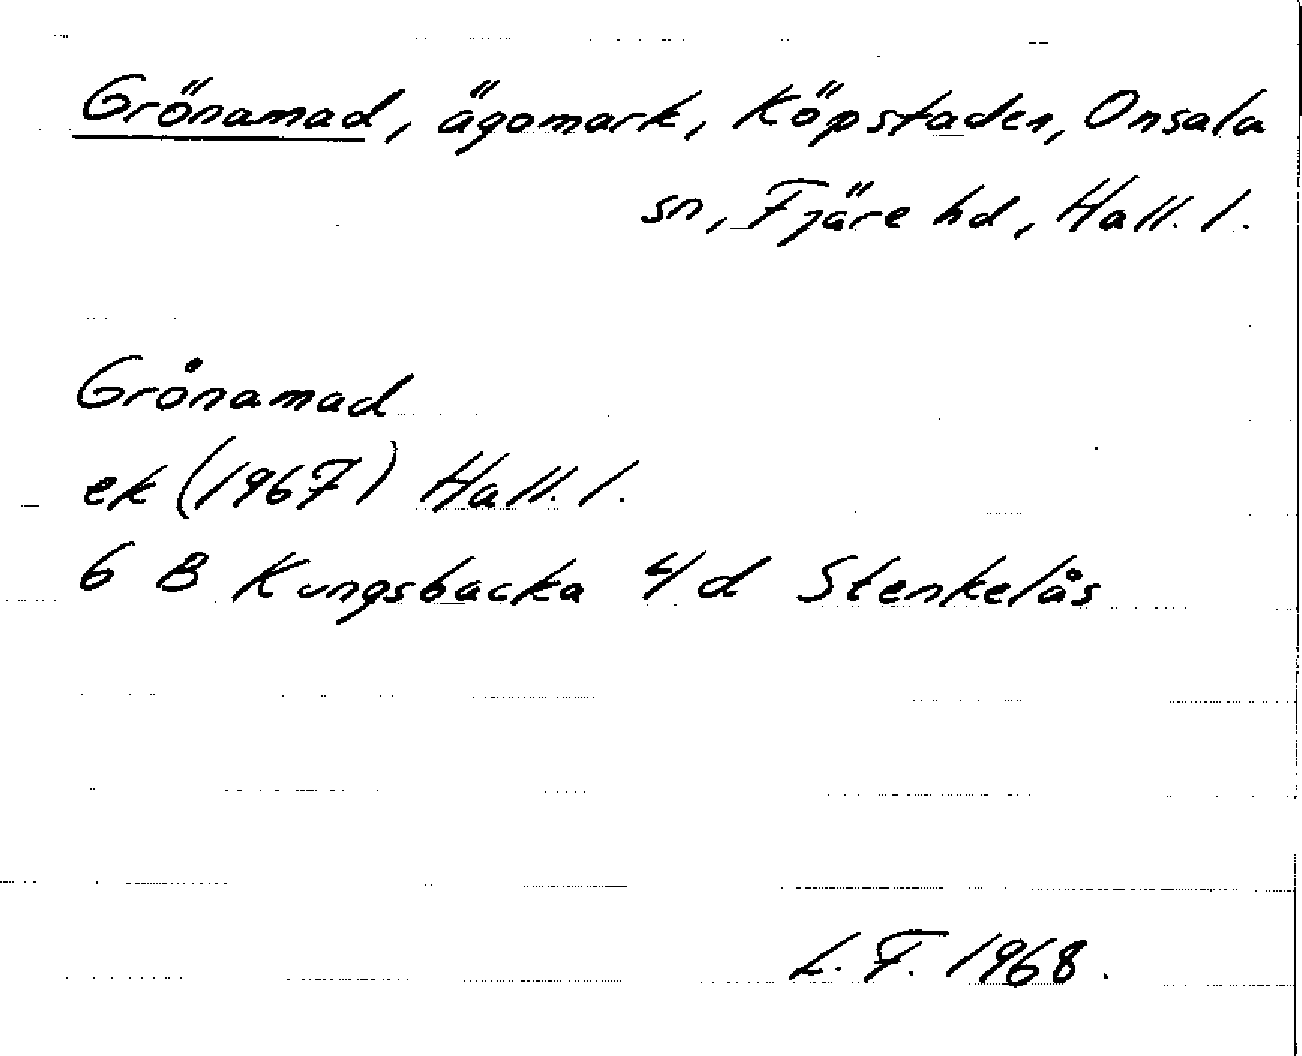 Grönamad, ägomark, Köpstaden, Onsala
sn, Fjäre hd, Hall. l.
Grönamad
ek (1967) Hall. l.
6 B Kungsbacka 4 d Stenkelås
L. F. 1968.